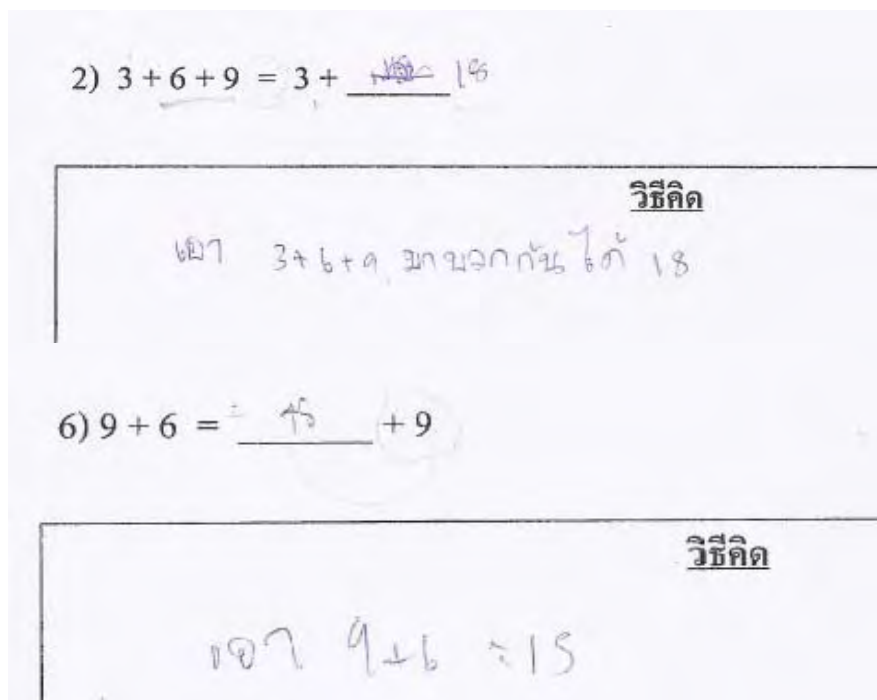 2) 3 + 6 + 9 = 3 + 18
วิธีคิด
เอา 3+6+9 มาบวกกันได้ 18
6) 9 + 6 = 15 + 9
วิธีคิด
เอา 9+6 = 15